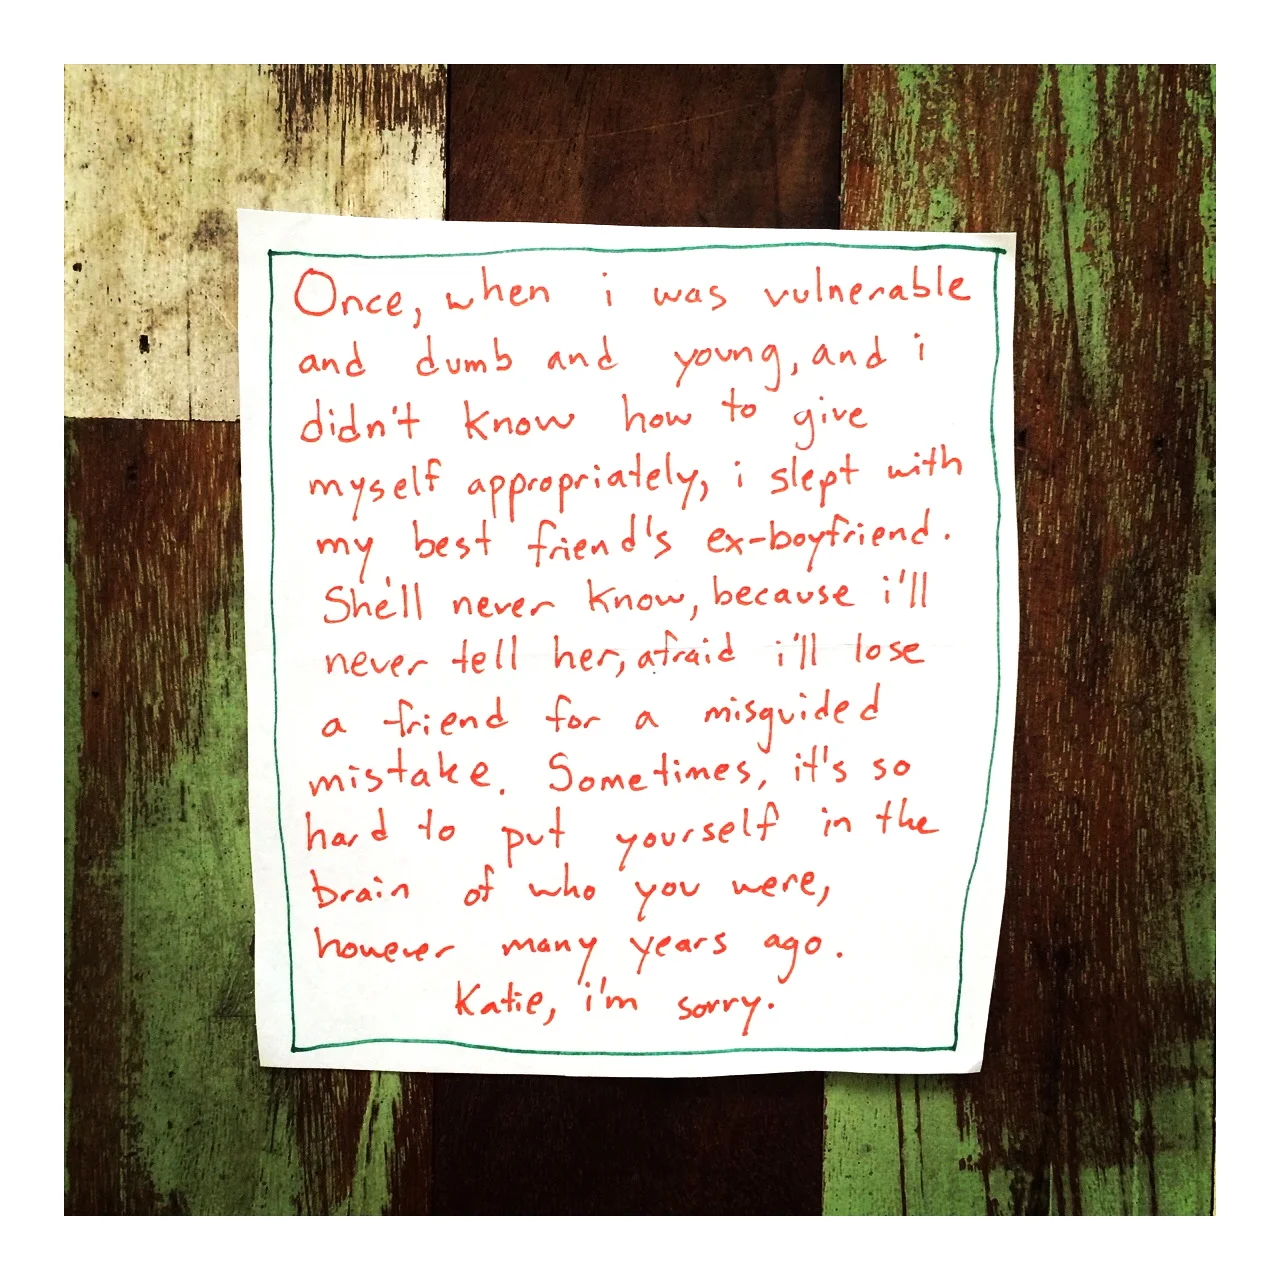 Once, when i was vulnerable
and dumb and young, and i
didn't know how to give
myself appropriately, i slept with
my best friend's ex-boyfriend.
She'll never know, because i'll
never tell her, afraid i'll lose
a friend for a misguided
mistake. Sometimes, it's so
hard to put yourself in the
brain of who you were,
however many years ago.
Katie, i'm sorry.